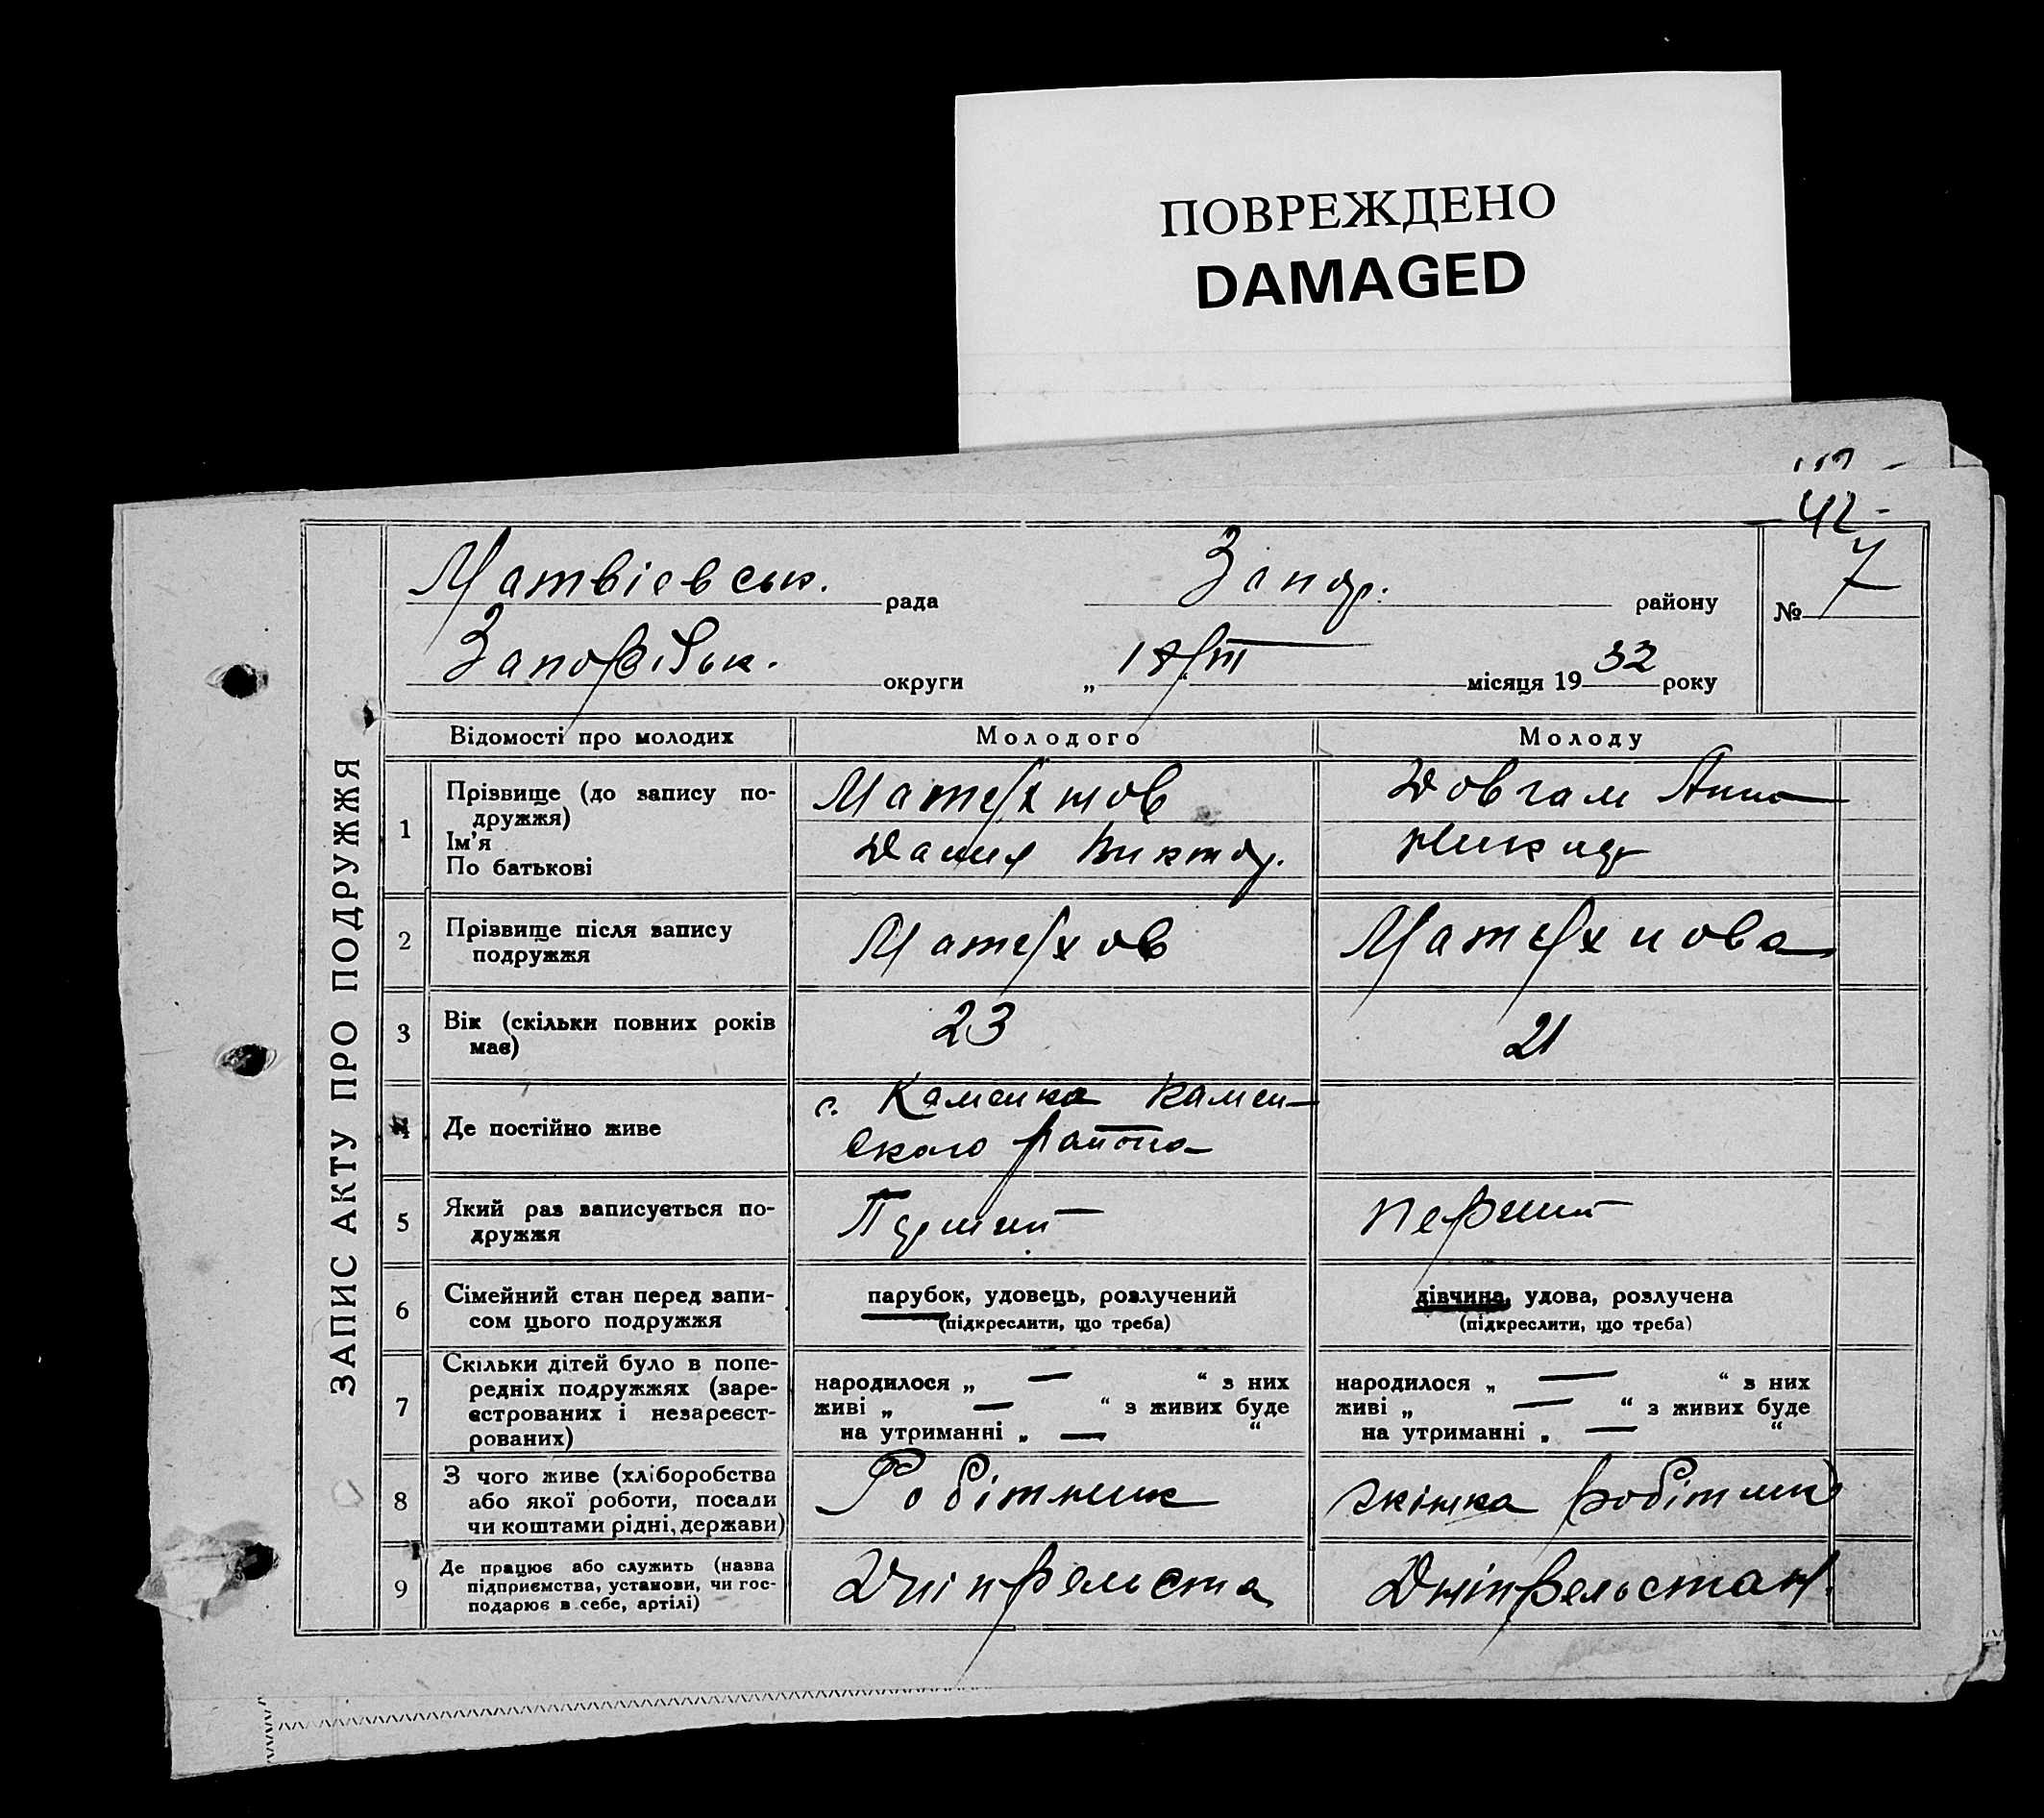 ПОВРЕЖДЕНО
DAMAGED
42-
ЗАПИС АКТУ ПРО ПОДРУЖЖЯ
Матвіевськ. рада Запор. району № 7
округи „ 18/III “ місяця 1932 року
Відомості про молодих Молодого Молоду
1 Прізвище (до запису по-
дружжя)
Ім’я
По батькові
Довгал Анна
Виктор.
2 Прізвище після запису
подружжя
3 Вік (скільки повних років
має)
23 21
4 Де постійно живе
с. Каменка Камен-
ского района
5 Який раз записується по-
дружжя
Перший перший
6 Сімейний стан перед запи-
сом цього подружжя
парубок, удовець, розлучений
(підкреслити, що треба)
дівчина, удова, розлучена
(підкреслити, що треба)
7 Скільки дітей було в попе-
редніх подружжях (заре-
єстрованих і незареєст-
рованих)
народилося „ — “ з них
живі „ — “ з живих буде
на утриманні „ — “
народилося „ — “ з них
живі „ — “ з живих буде
на утриманні „ — “
8 З чого живе (хліборобства
або якої роботи, посади
чи коштами рідні, держави)
Робітник
жінка робітник
9 Де працює або служить (назва
підприємства, установи, чи гос-
подарює в себе, артілі)